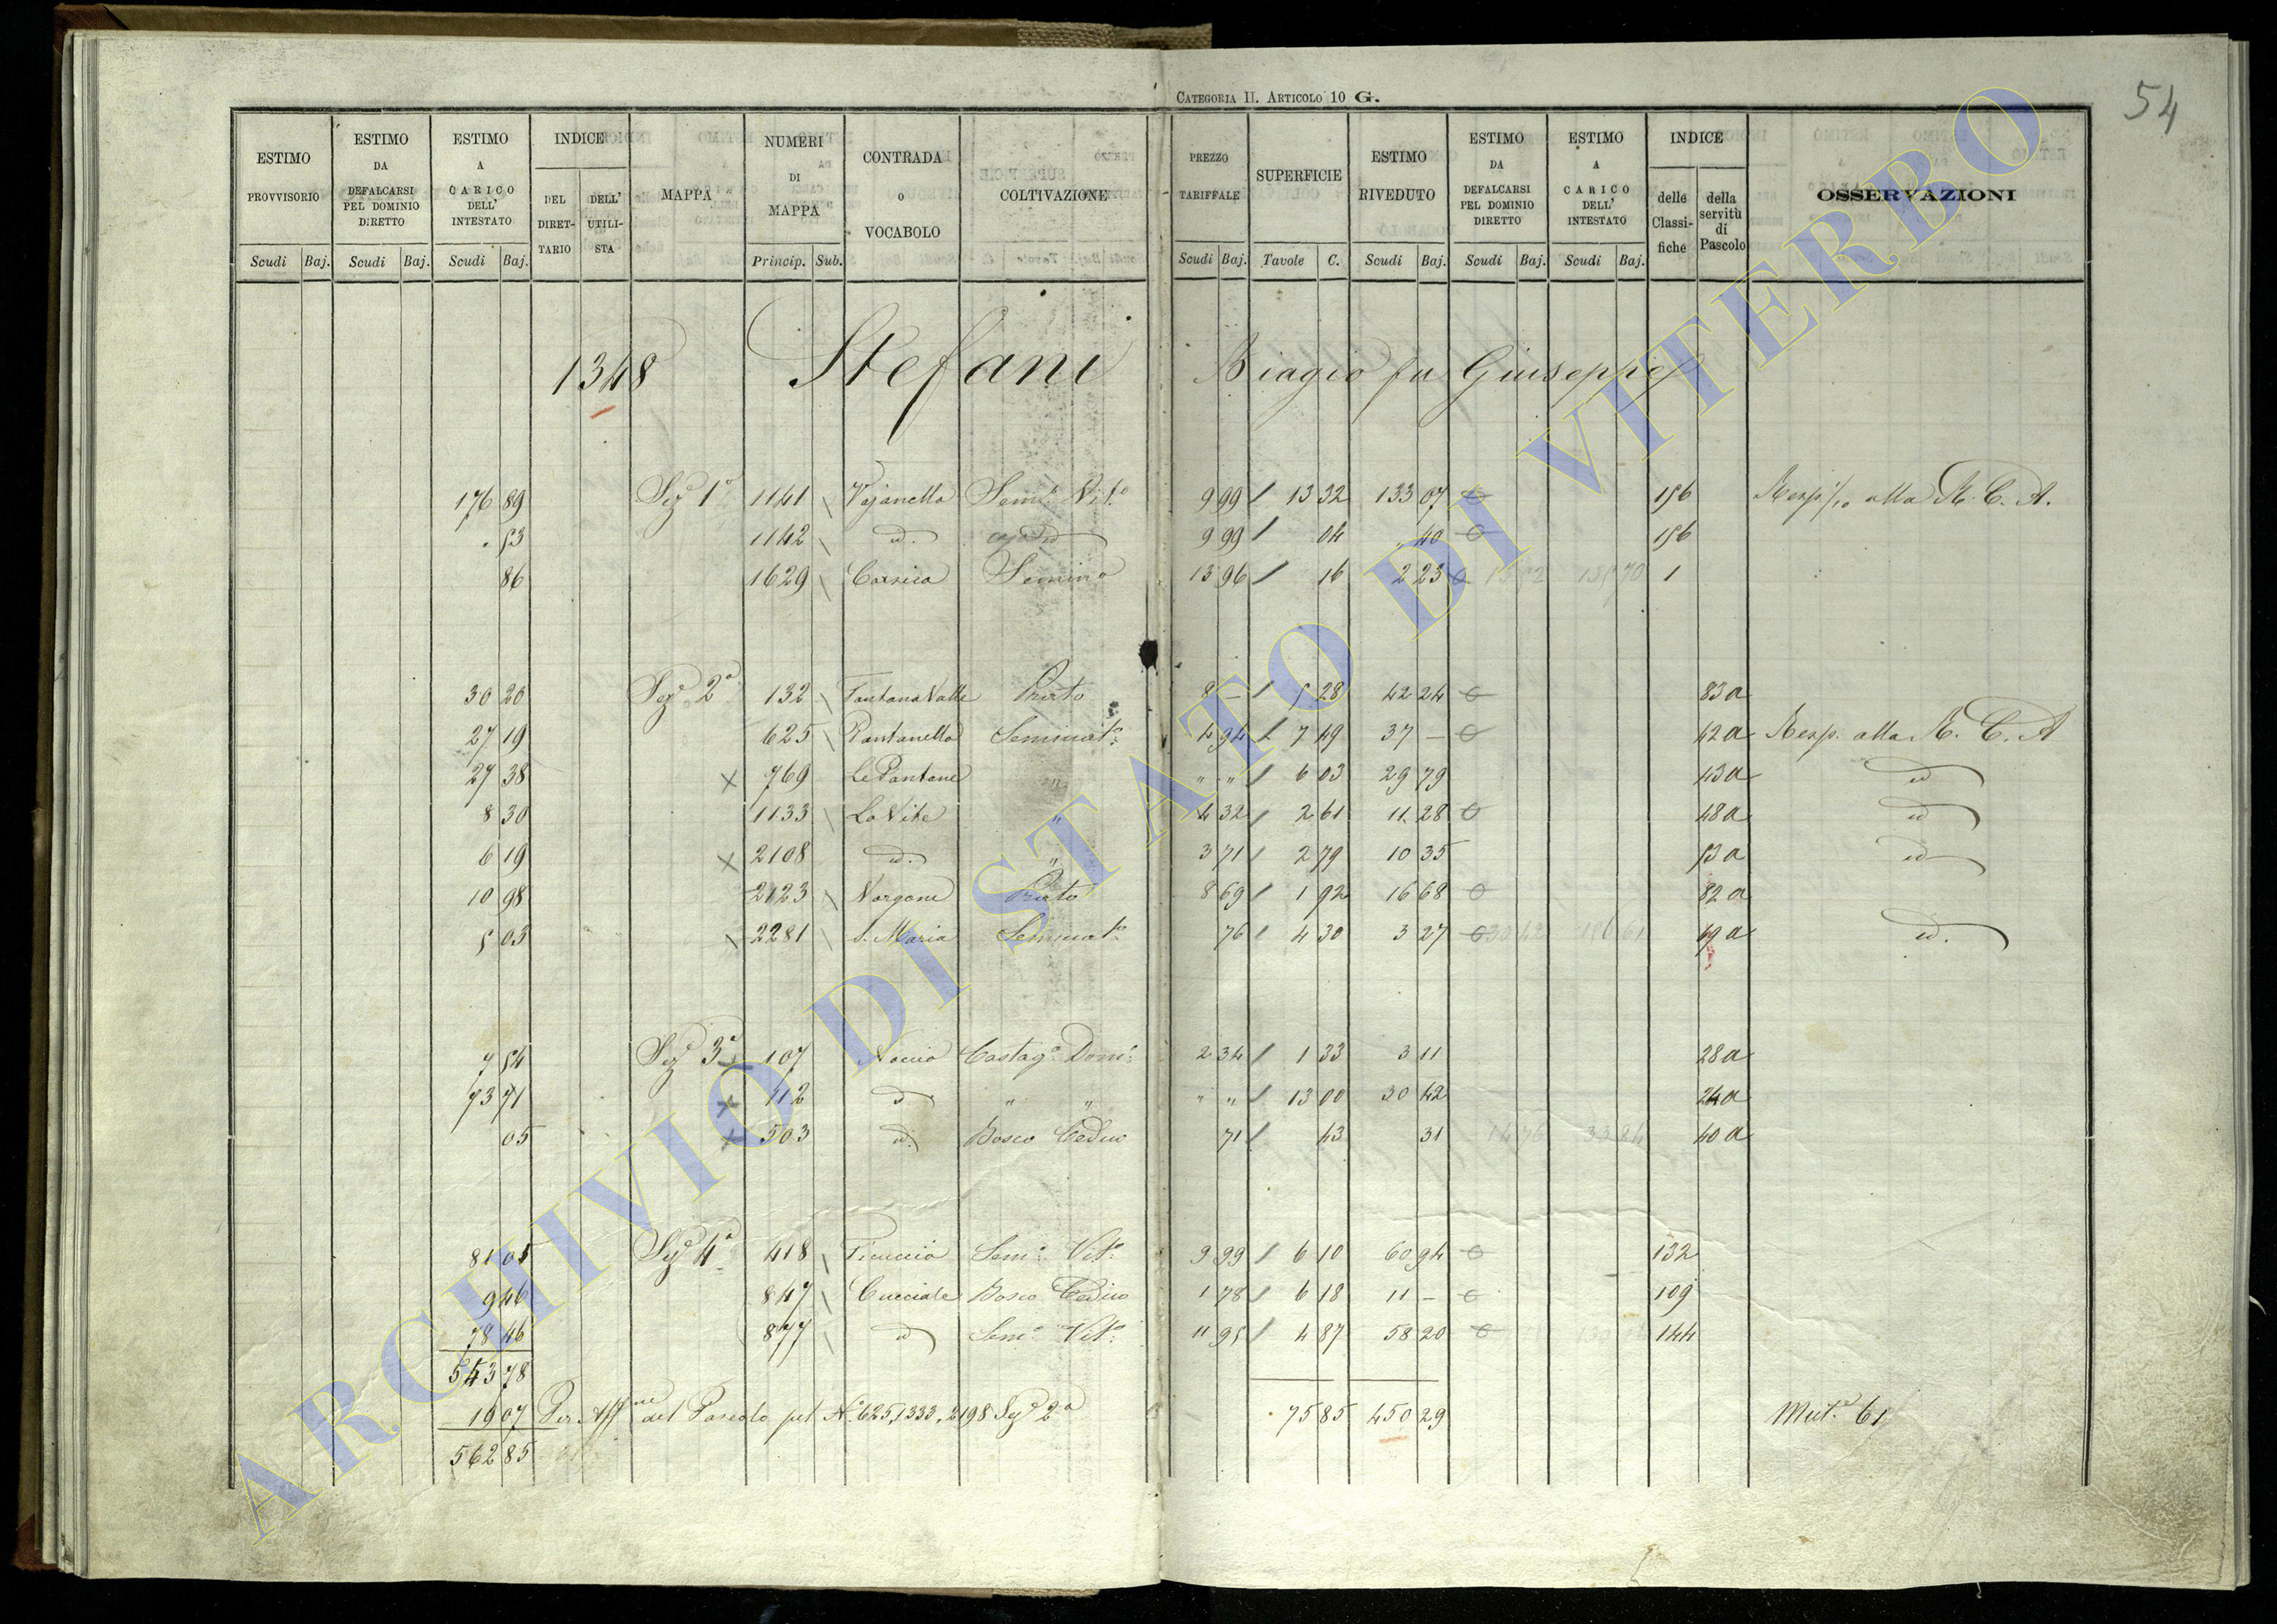 CATEGORIA II. ARTICOLO 10 G.
54
ESTIMO PROVVISORIO Scudi Baj.
ESTIMO DA DEFALCARSI PEL DOMINIO DIRETTO Scudi Baj.
ESTIMO A CARICO DELL' INTESTATO Scudi Baj.
INDICE DEL DIRETTARIO DELL' UTILISTA
MAPPA
NUMERI DI MAPPA Princip. Sub.
CONTRADA o VOCABOLO
COLTIVAZIONE
PREZZO TARIFFALE Scudi Baj.
SUPERFICIE Tavole C.
ESTIMO RIVEDUTO Scudi Baj.
ESTIMO DA DEFALCARSI PEL DOMINIO DIRETTO Scudi Baj.
ESTIMO A CARICO DELL' INTESTATO Scudi Baj.
INDICE delle Classifiche della servitù di Pascolo
OSSERVAZIONI
1348 Stefani Biagio fu Giuseppe
176 89 Sez.e 1a 1141 Vajanella Sem.o Vit.o 9 99 13 32 133 07 156 Resp. alla R. C. A.
53 1142 id. id 9 99 04 40 156
86 1629 Corsica Semin.o 13 96 16 2 23 1
30 20 Sez.e 2a 132 Fontana Valle Prato 8 — 5 28 42 24 83 a
27 19 625 Pantanella Seminat.o 4 94 7 49 37 — 42 a Resp. alla R. C. A
27 38 769 Le Pantane " " " 6 03 29 79 43 a id
8 30 1133 La Vite " 4 32 2 61 11 28 48 a id
6 19 2108 id. " 3 71 2 79 10 35 53 a id
10 98 2123 Norgone Prato 8 69 1 92 16 68 82 a
5 03 2281 S. Maria Seminat.o 76 4 30 3 27 69 a id.
7 54 Sez.e 3a 107 Noccio Castag.o Dom.o 2 34 1 33 3 11 28 a
73 71 112 d. " " " " 13 00 30 42 24 a
05 503 id. Bosco Ceduo 71 43 31 40 a
81 05 Sez.e 4a 418 Ficuccia Sem.o Vit.o 9 99 6 10 60 94 132
9 46 847 Cucciale Bosco Ceduo 1 78 6 18 11 — 109
78 46 877 id Sem.o Vit.o 11 95 4 87 58 20 144
543 78
19 07 Per Aff.ne del Pascolo pel N. 625, 1333, 2198 Sez.e 2a 75 85 450 29 Mut.a 61
562 85
ARCHIVIO DI STATO DI VITERBO